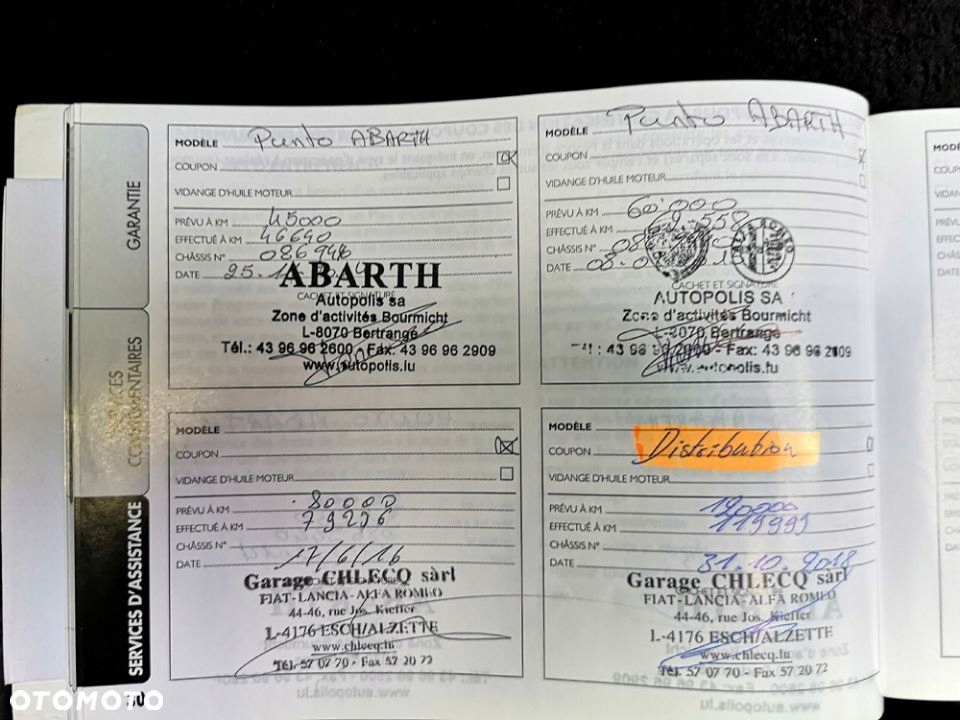 GARANTIE
SERVICES
COMPLÉMENTAIRES
SERVICES D'ASSISTANCE
MODÈLE Punto ABARTH
COUPON
VIDANGE D'HUILE MOTEUR
PRÉVU À KM 45000
EFFECTUÉ À KM 46640
CHÂSSIS N° 086946
DATE 25.
CACHET ET SIGNATURE
ABARTH
Autopolis sa
Zone d'activités Bourmicht
L-8070 Bertrange
Tél.: 43 96 96 2600 - Fax: 43 96 96 2909
www.autopolis.lu
MODÈLE Punto ABARTH
COUPON
VIDANGE D'HUILE MOTEUR
PRÉVU À KM 60.000
EFFECTUÉ À KM
CHÂSSIS N°
DATE
ALFA ROMEO
CACHET ET SIGNATURE
AUTOPOLIS SA
Zone d'activités Bourmicht
L-8070 Bertrange
43 96 96 2600 - Fax: 43 96 96 2909
www.autopolis.lu
MODÈLE
COUPON
VIDANGE D'HUILE MOTEUR
PRÉVU À KM 80000
EFFECTUÉ À KM 79296
CHÂSSIS N°
DATE 17/6/16
Garage CHLECQ sàrl
FIAT-LANCIA-ALFA ROMEO
44-46, rue Jos. Kieffer
L-4176 ESCH/ALZETTE
www.chlecq.lu
Tél. 57 07 70 - Fax 57 20 72
MODÈLE
COUPON Distribution
VIDANGE D'HUILE MOTEUR
PRÉVU À KM 120000
EFFECTUÉ À KM 119999
CHÂSSIS N°
DATE 31.10.2018
Garage CHLECQ sàrl
FIAT-LANCIA-ALFA ROMEO
44-46, rue Jos. Kieffer
L-4176 ESCH/ALZETTE
www.chlecq.lu
Tél. 57 07 70 - Fax 57 20 72
30
OTOMOTO